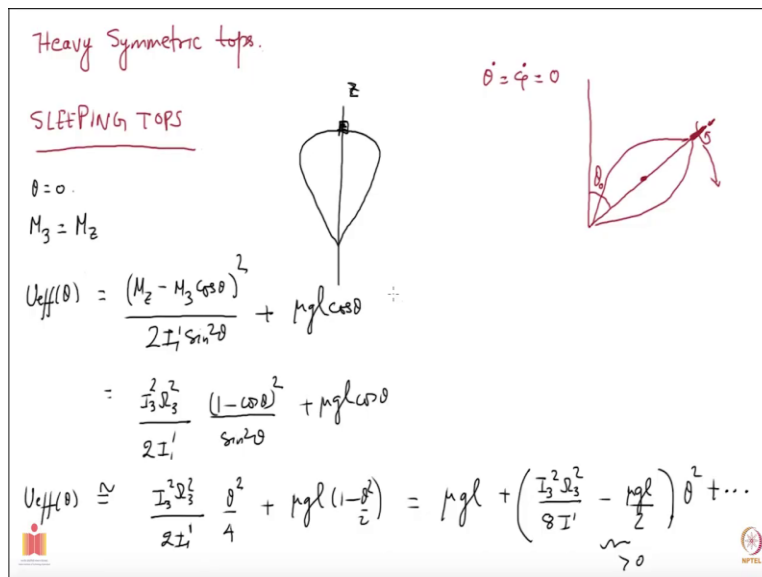 Heavy Symmetric tops.
SLEEPING TOPS
z
θ̇ = φ̇ = 0
θ₀
θ = 0.
M₃ = M_z
U_eff(θ) = (M_z - M₃ cosθ)² / 2I₁' sin²θ + μgl cosθ
= I₃² Ω₃² / 2I₁' (1 - cosθ)² / sin²θ + μgl cosθ
U_eff(θ) ≅ I₃² Ω₃² / 2I₁' θ²/4 + μgl (1 - θ²/2) = μgl + (I₃² Ω₃² / 8I' - μgl/2) θ² + ...
> 0
NPTEL